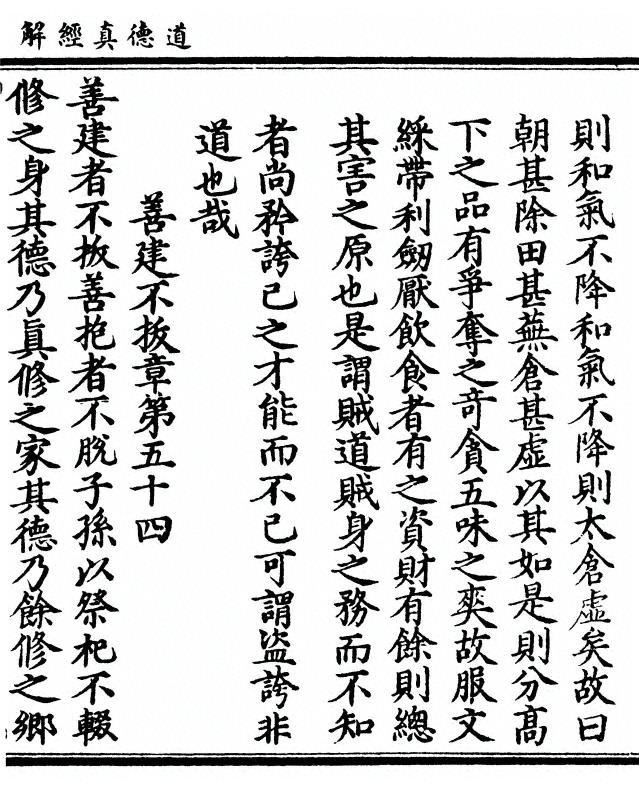 道德真經解
則和氣不降和氣不降則太倉虛矣故曰
朝甚除田甚蕪倉甚虛以其如是則分高
下之品有爭奪之竒貪五味之爽故服文
綵帶利劒厭飲食者有之資財有餘則總
其害之原也是謂賊道賊身之務而不知
者尚矜誇己之才能而不已可謂盜誇非
道也哉
善建不拔章第五十四
善建者不拔善抱者不脫子孫以祭祀不輟
修之身其德乃眞修之家其德乃餘修之鄉